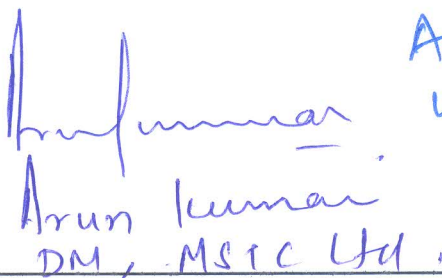 Arun Kumar
Arun Kumar
DM, MSTC Ltd.